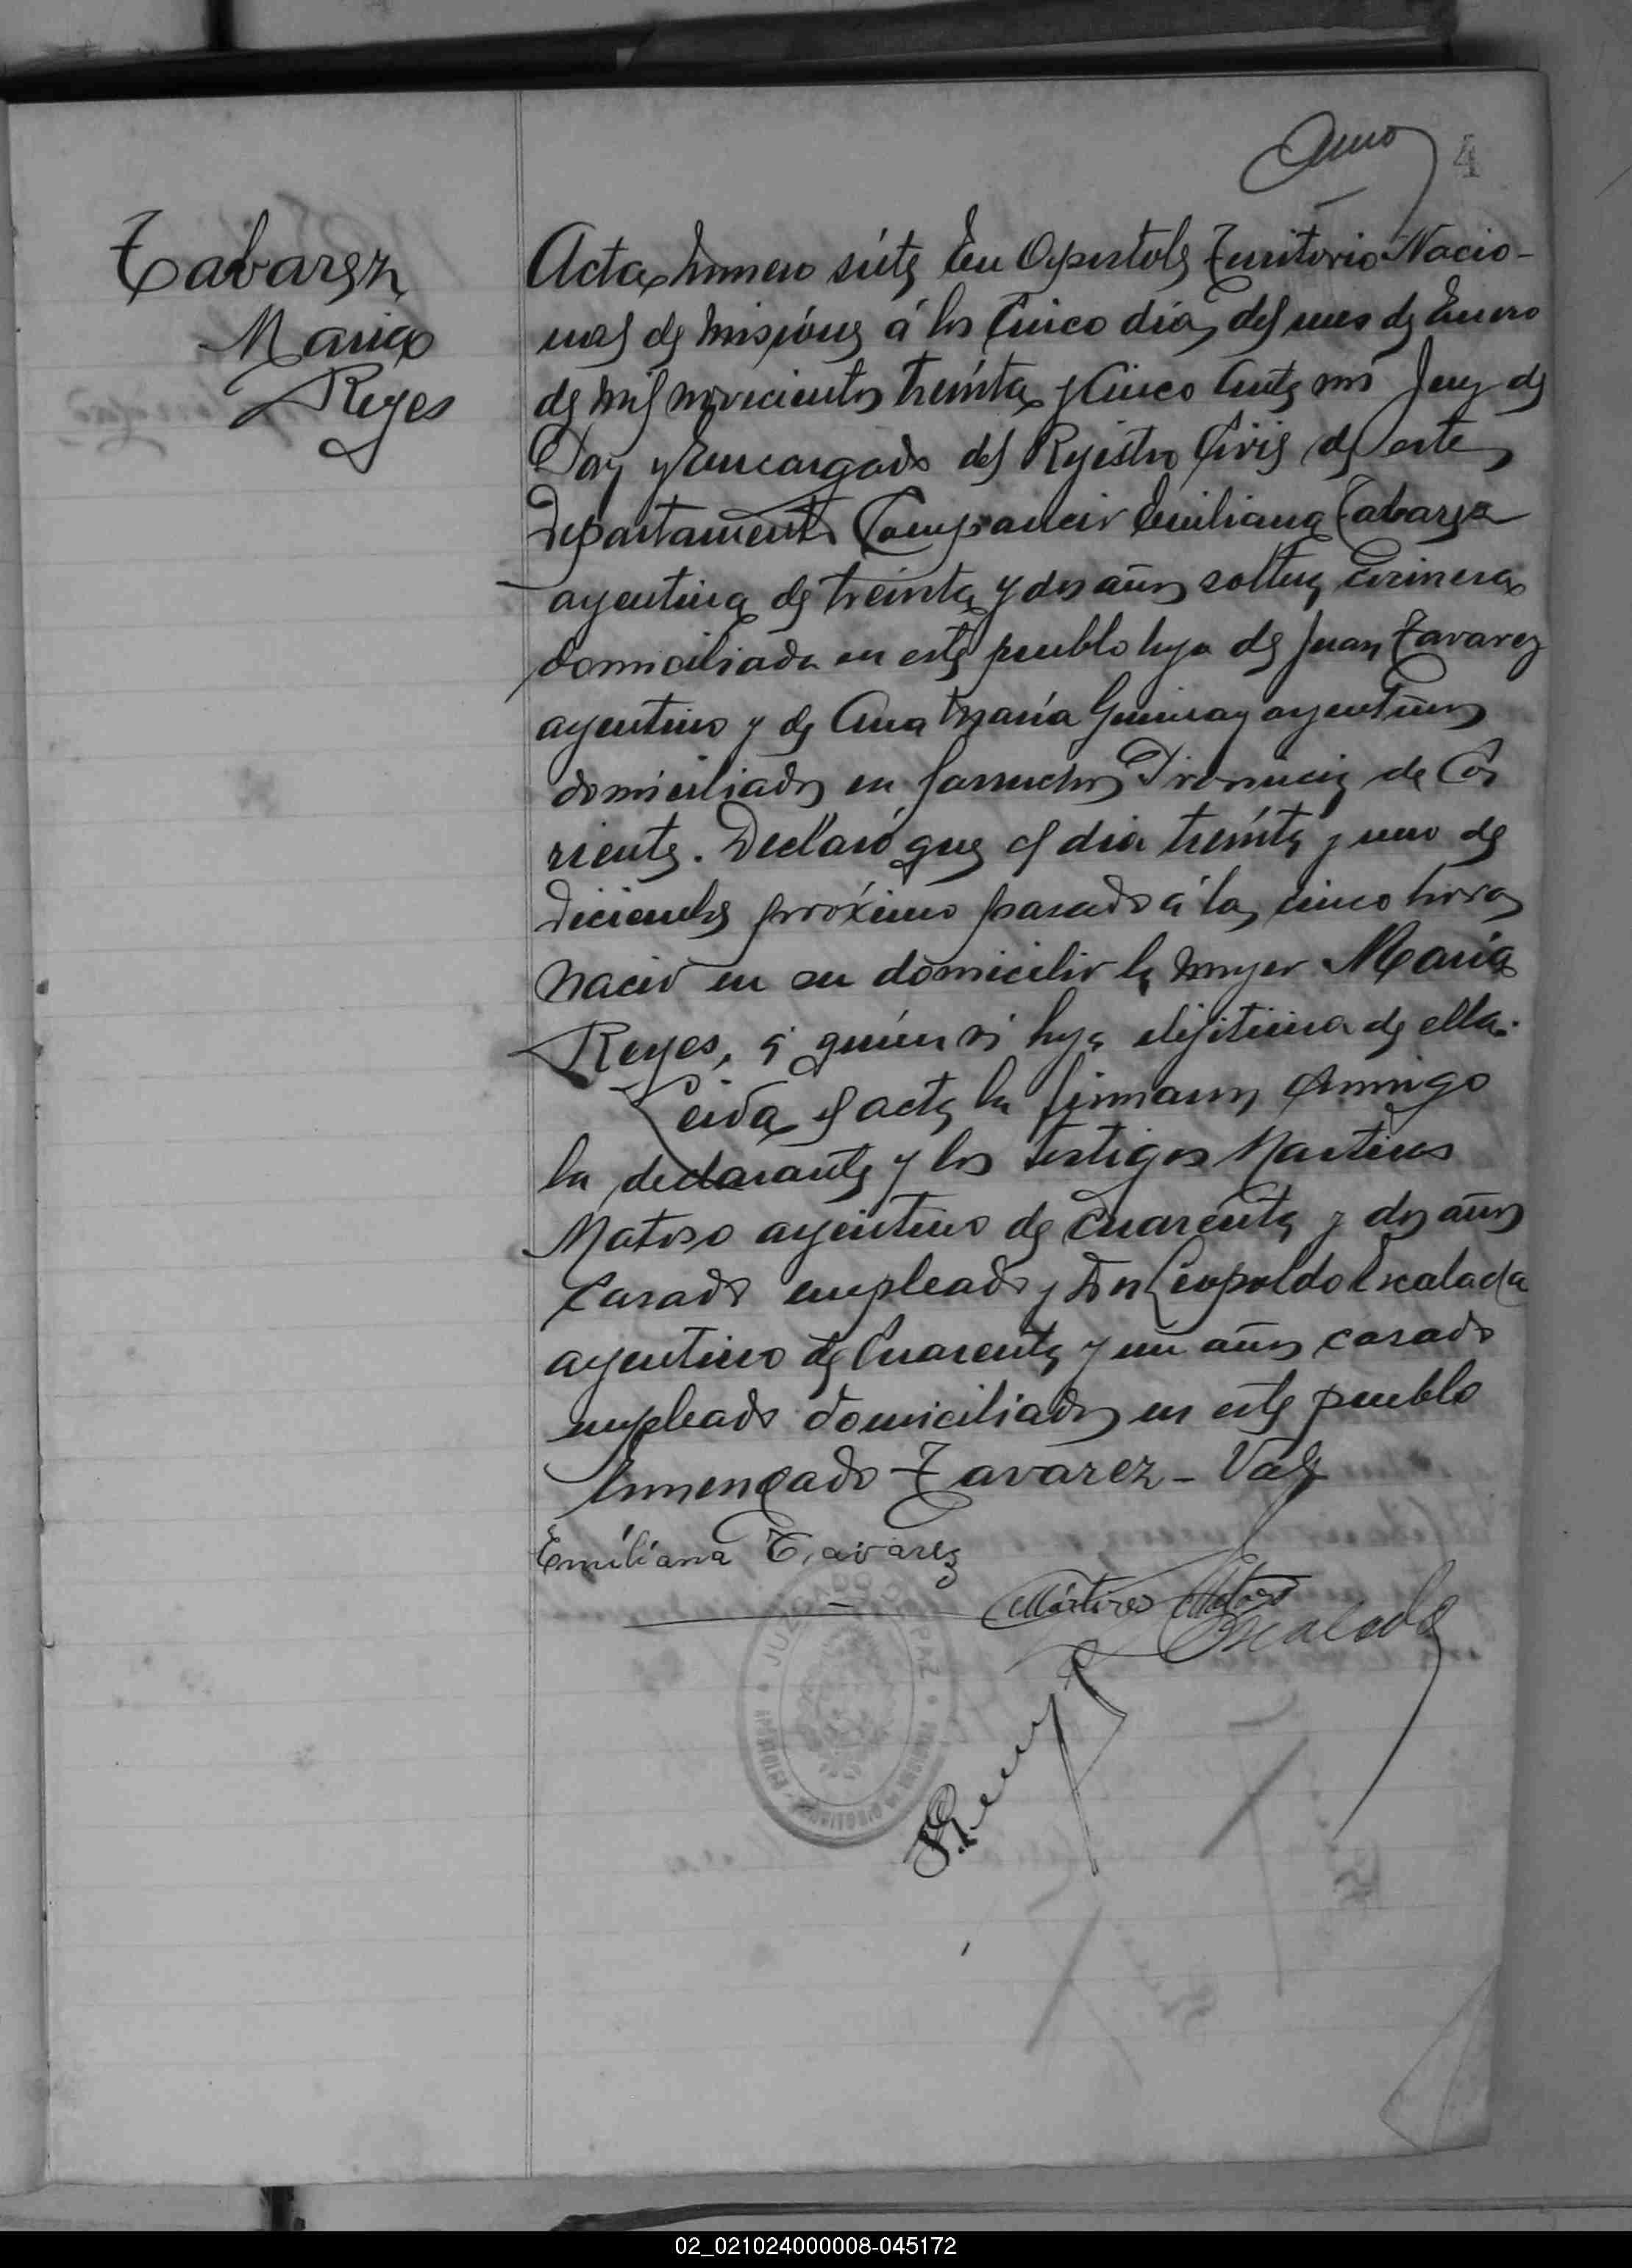 4
Tabarez
Maria
Reyes
Acta numero siete En Apostoles Territorio Nacio-
nal de Misiones á los Cinco dias del mes de Enero
de mil novecientos treinta y Cinco Ante mi Juez de
Paz y Encargado del Rejistro Civil de este
Departamento Comparecio Emiliana Tabarez
argentina de treinta y dos años soltera cocinera
domiciliada en este pueblo hija de Juan Tavarez
argentino y de Ana María argentinos
domiciliados en Garruchos Provincia de Cor
rientes. Declaró que el dia treinta y uno de
Diciembre próximo pasado á las cinco horas
nació en su domicilio la mujer María
Reyes, á quien vi hija elijitima de ella.
Leida el acta la firmaron conmigo
la declarante y los testigos Martires
Matoso argentino de cuarenta y dos años
casado empleado y Don Leopoldo Escalada
argentino de Cuarenta y un años casado
empleado domiciliados en este pueblo
Enmendado Tavarez - Vale
Emiliana Tavarez
Mártires Matoso
Escalada
JUZGADO DE PAZ
APOSTOLES
02_021024000008-045172